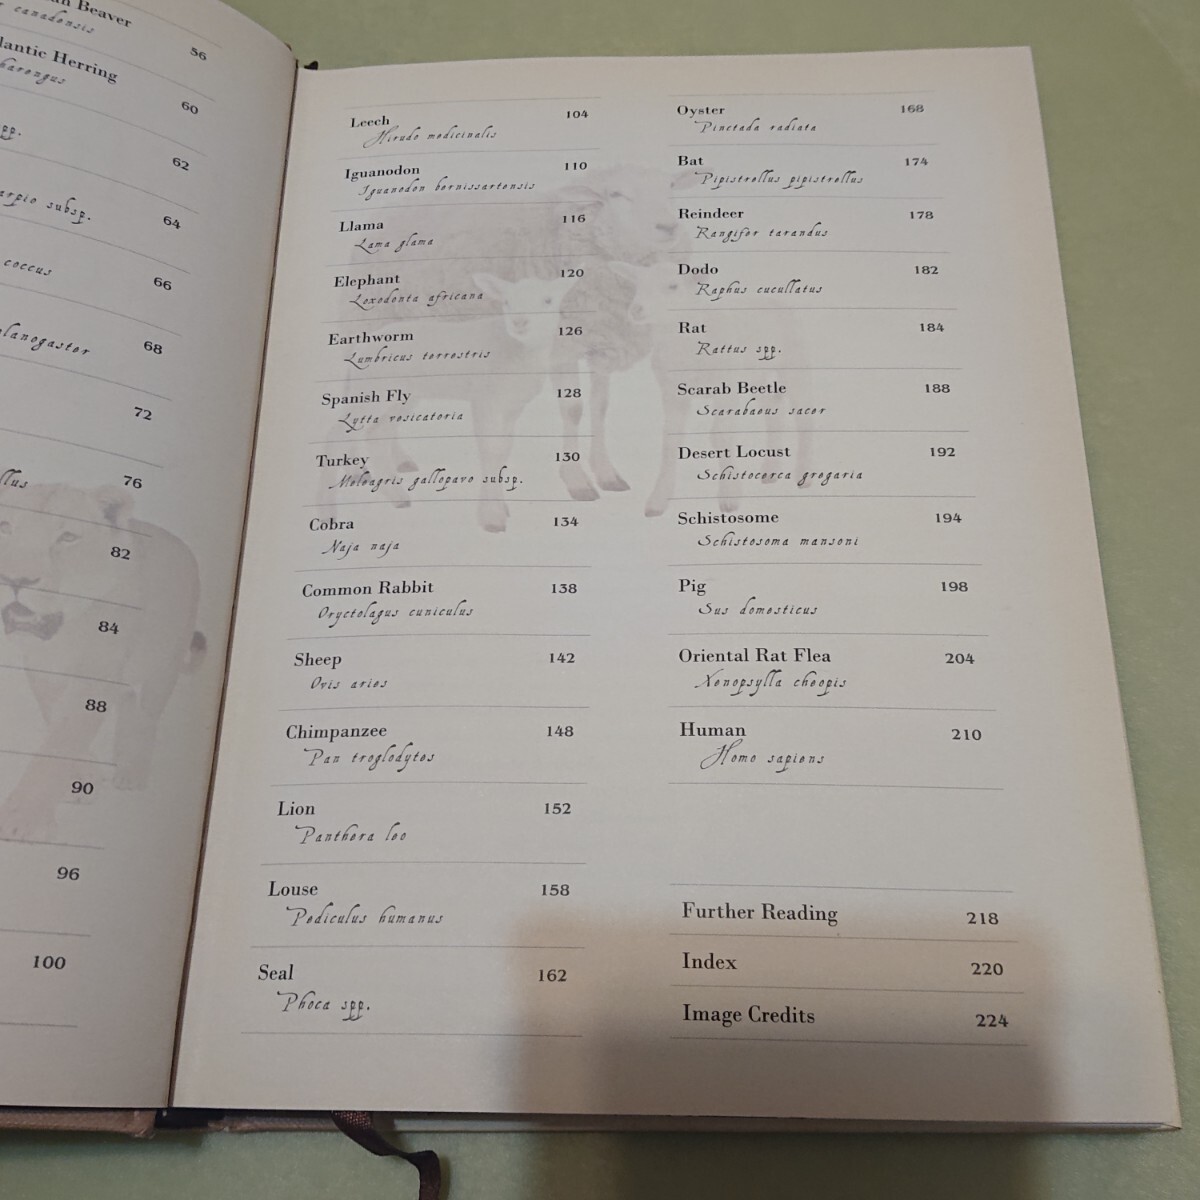 Beaver
canadensis
56
Atlantic Herring
harengus
60
spp.
62
carpio subsp.
64
coccus
66
melanogaster
68
72
76
82
84
88
90
96
100
Leech 104
Hirudo medicinalis
Iguanodon 110
Iguanodon bernissartensis
Llama 116
Lama glama
Elephant 120
Loxodonta africana
Earthworm 126
Lumbricus terrestris
Spanish Fly 128
Lytta vesicatoria
Turkey 130
Meleagris gallopavo subsp.
Cobra 134
Naja naja
Common Rabbit 138
Oryctolagus cuniculus
Sheep 142
Ovis aries
Chimpanzee 148
Pan troglodytes
Lion 152
Panthera leo
Louse 158
Pediculus humanus
Seal 162
Phoca spp.
Oyster 168
Pinctada radiata
Bat 174
Pipistrellus pipistrellus
Reindeer 178
Rangifer tarandus
Dodo 182
Raphus cucullatus
Rat 184
Rattus spp.
Scarab Beetle 188
Scarabaeus sacer
Desert Locust 192
Schistocerca gregaria
Schistosome 194
Schistosoma mansoni
Pig 198
Sus domesticus
Oriental Rat Flea 204
Xenopsylla cheopis
Human 210
Homo sapiens
Further Reading 218
Index 220
Image Credits 224